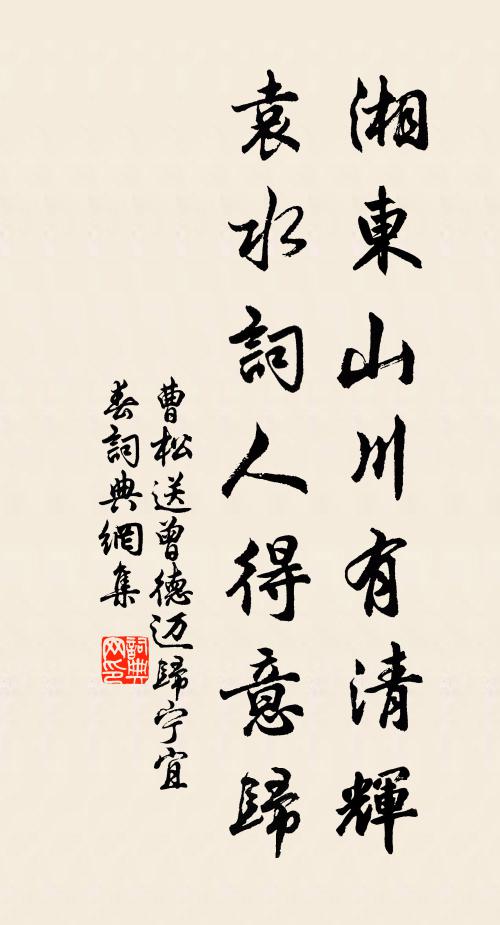 湘東山川有清輝
袁水詞人得意歸
曹松送曾德迈歸宁宜
春詞典網集
詞典
网印